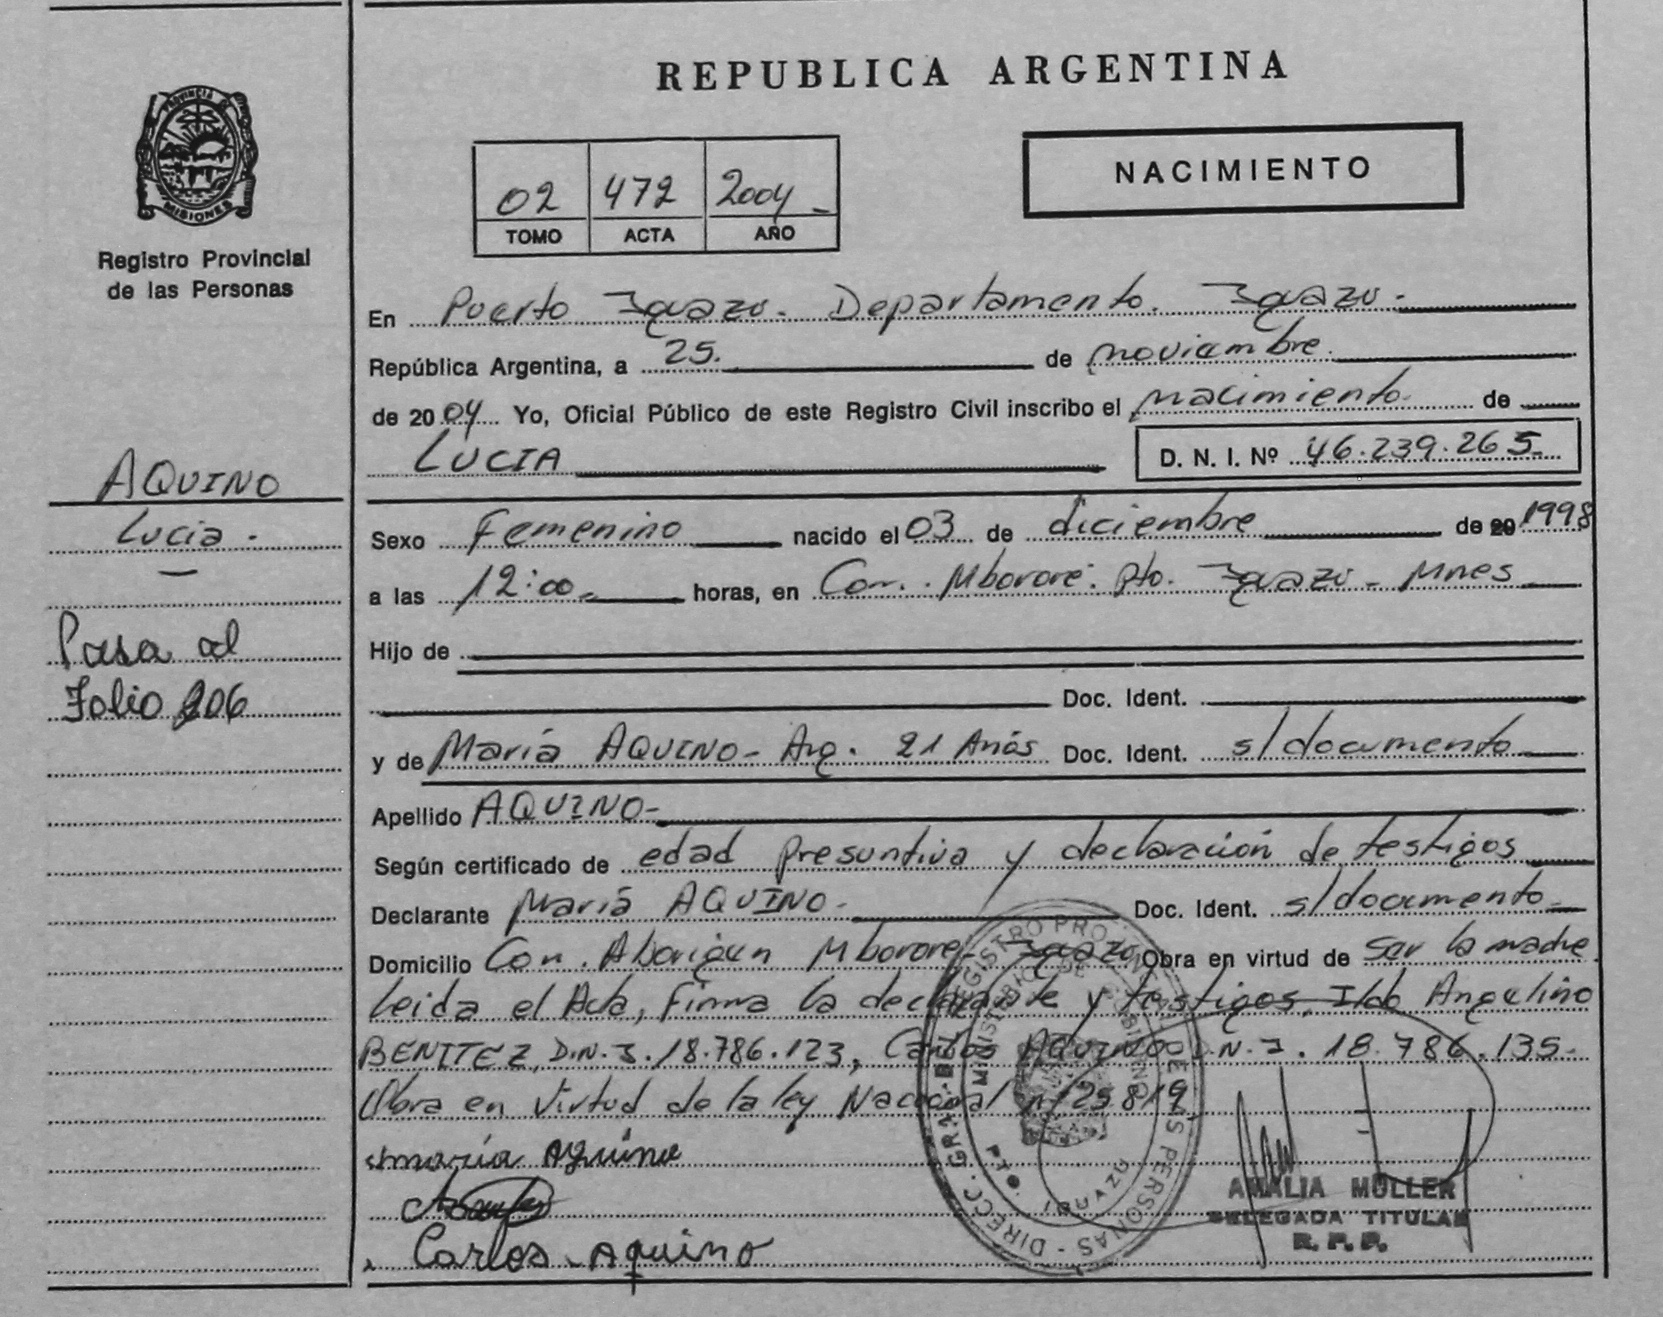 REPUBLICA ARGENTINA
PROVINCIA DE
MISIONES
Registro Provincial
de las Personas
02 472 2004
TOMO ACTA AÑO
NACIMIENTO
En Puerto Iguazu. Departamento. Iguazu.
República Argentina, a 25. de noviembre.
de 2004 Yo, Oficial Público de este Registro Civil inscribo el nacimiento. de
LUCIA D. N. I. Nº 46.239.265
AQUINO
Lucia.
Pasa al
Folio 206
Sexo Femenino nacido el 03 de diciembre de 20 1998
a las 12:00 horas, en Com. Mbororé. Pto. Iguazu - Mnes
Hijo de
Doc. Ident.
y de María AQUINO- Arg. 21 Años Doc. Ident. s/documento
Apellido AQUINO-
Según certificado de edad Presuntiva y declaración de testigos
Declarante María AQUINO- Doc. Ident. s/documento
Domicilio Com. Aborigen Mbororé- Iguazu Obra en virtud de Ser la madre
Leida el Acta, Firma la declarante y testigos, Ildo Angelino
BENITEZ, D.N.I. 18.786.123, Carlos AQUINO D.N.I. 18.786.135-
Obra en Virtud de la ley Nacional nº/25819
maría Aquino
Carlos Aquino
DIRECC. GRAL. DEL REGISTRO PROV. DE LAS PERSONAS
MINISTERIO DE GOBIERNO
PTO. IGUAZU
AMALIA MULLER
DELEGADA TITULAR
R. P. P.